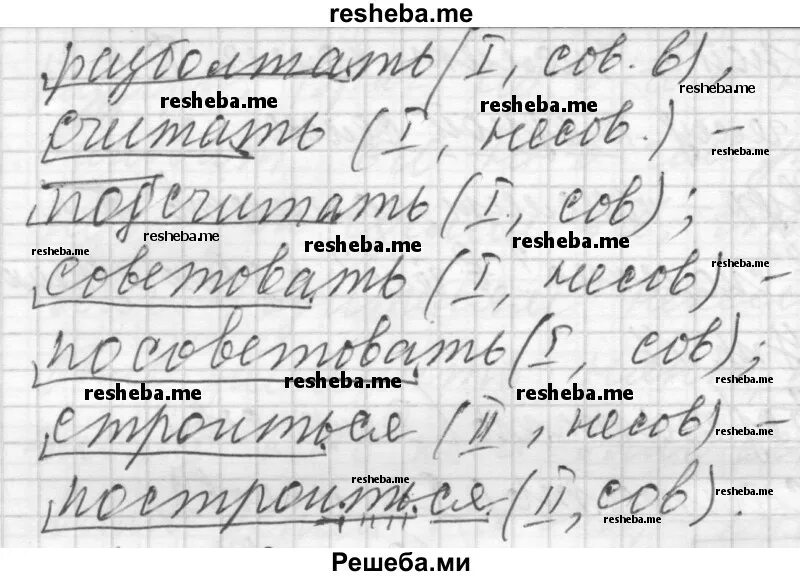 resheba.me
разболтать (I, сов. в),
resheba.me resheba.me resheba.me
считать (I, несов.) –
resheba.me
подсчитать (I, сов);
resheba.me resheba.me resheba.me resheba.me
советовать (I, несов) –
resheba.me
посоветовать (I, сов);
resheba.me resheba.me resheba.me resheba.me
строиться (II, несов) –
resheba.me
построиться (II, сов).
resheba.me resheba.me resheba.me
Решеба.ми